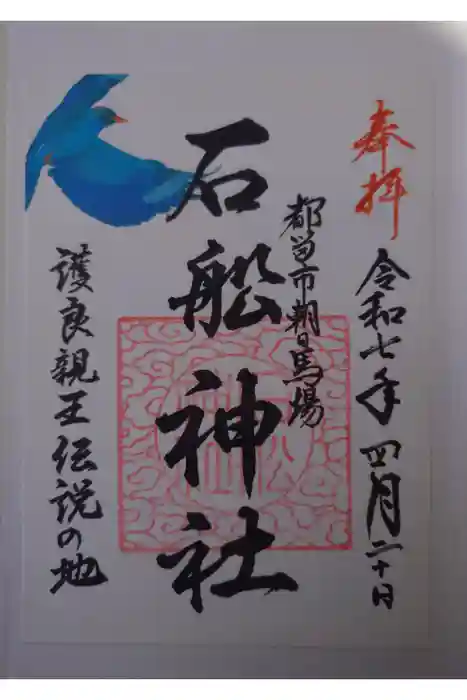 奉拝
令和七年四月二十日
都留市朝日馬場
石船神社
護良親王伝説の地